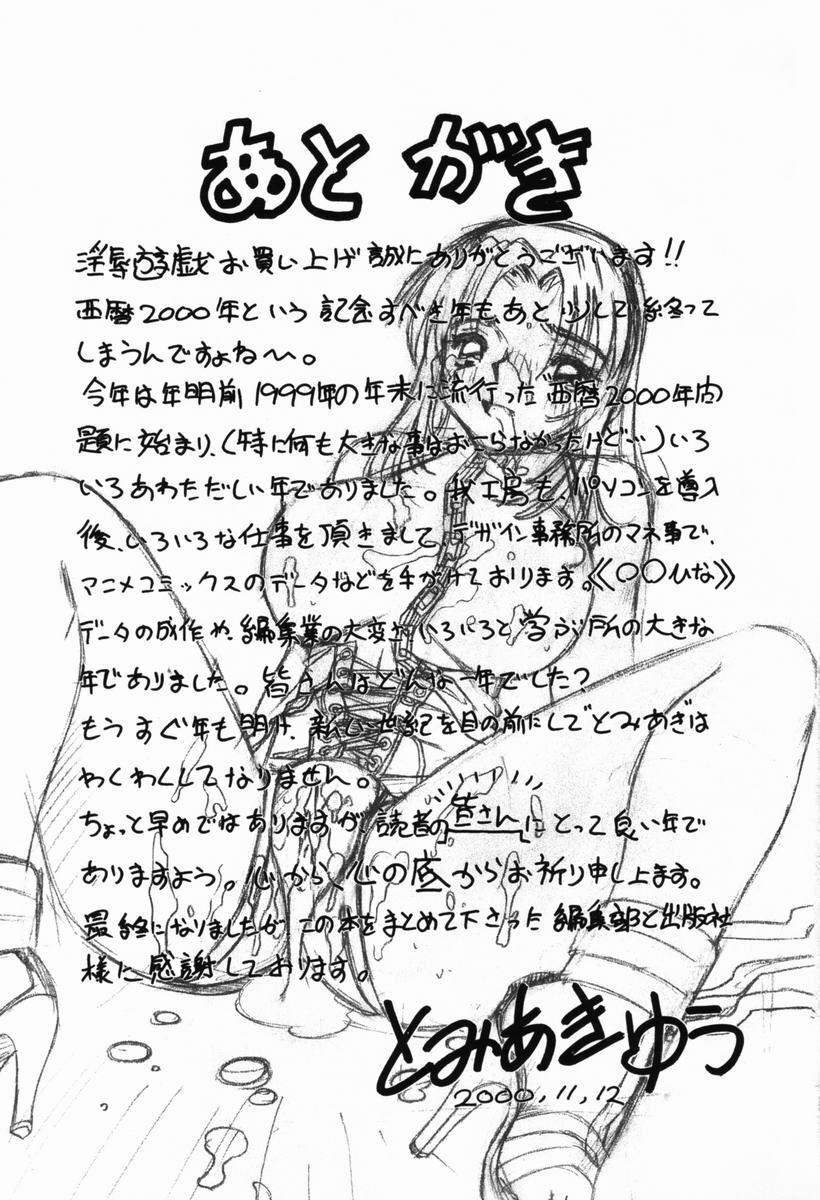 あとがき
淫辱遊戯お買い上げ誠にありがとうございます!!
西暦2000年という記念すべき年も、あと少しで終って
しまうんですよね〜。
今年は年明前1999年の年末に流行った西暦2000年問
題に始まり、(特に何も大きな事はおこらなかったけど…)いろ
いろあわただしい年でありました。我工房も、パソコンを導入
後、いろいろな仕事を頂きまして、デザイン事務所のマネ事で、
アニメコミックスのデータなどを手がけております。《〇〇ひな》
データの成作や、編集業の大変さいろいろと学ぶ所の大きな
年でありました。皆さんはどんな一年でした?
もうすぐ年も明け、新しい世紀を目の前にしてとみあきは
わくわくしてなりません。
ちょっと早めではありますが読者の皆さんにとって良い年で
ありますよう。心から、心の底からお祈り申し上ます。
最終になりましたがこの本をまとめて下さった編集部と出版社
様に感謝しております。
とみあきゆう
2000,11,12